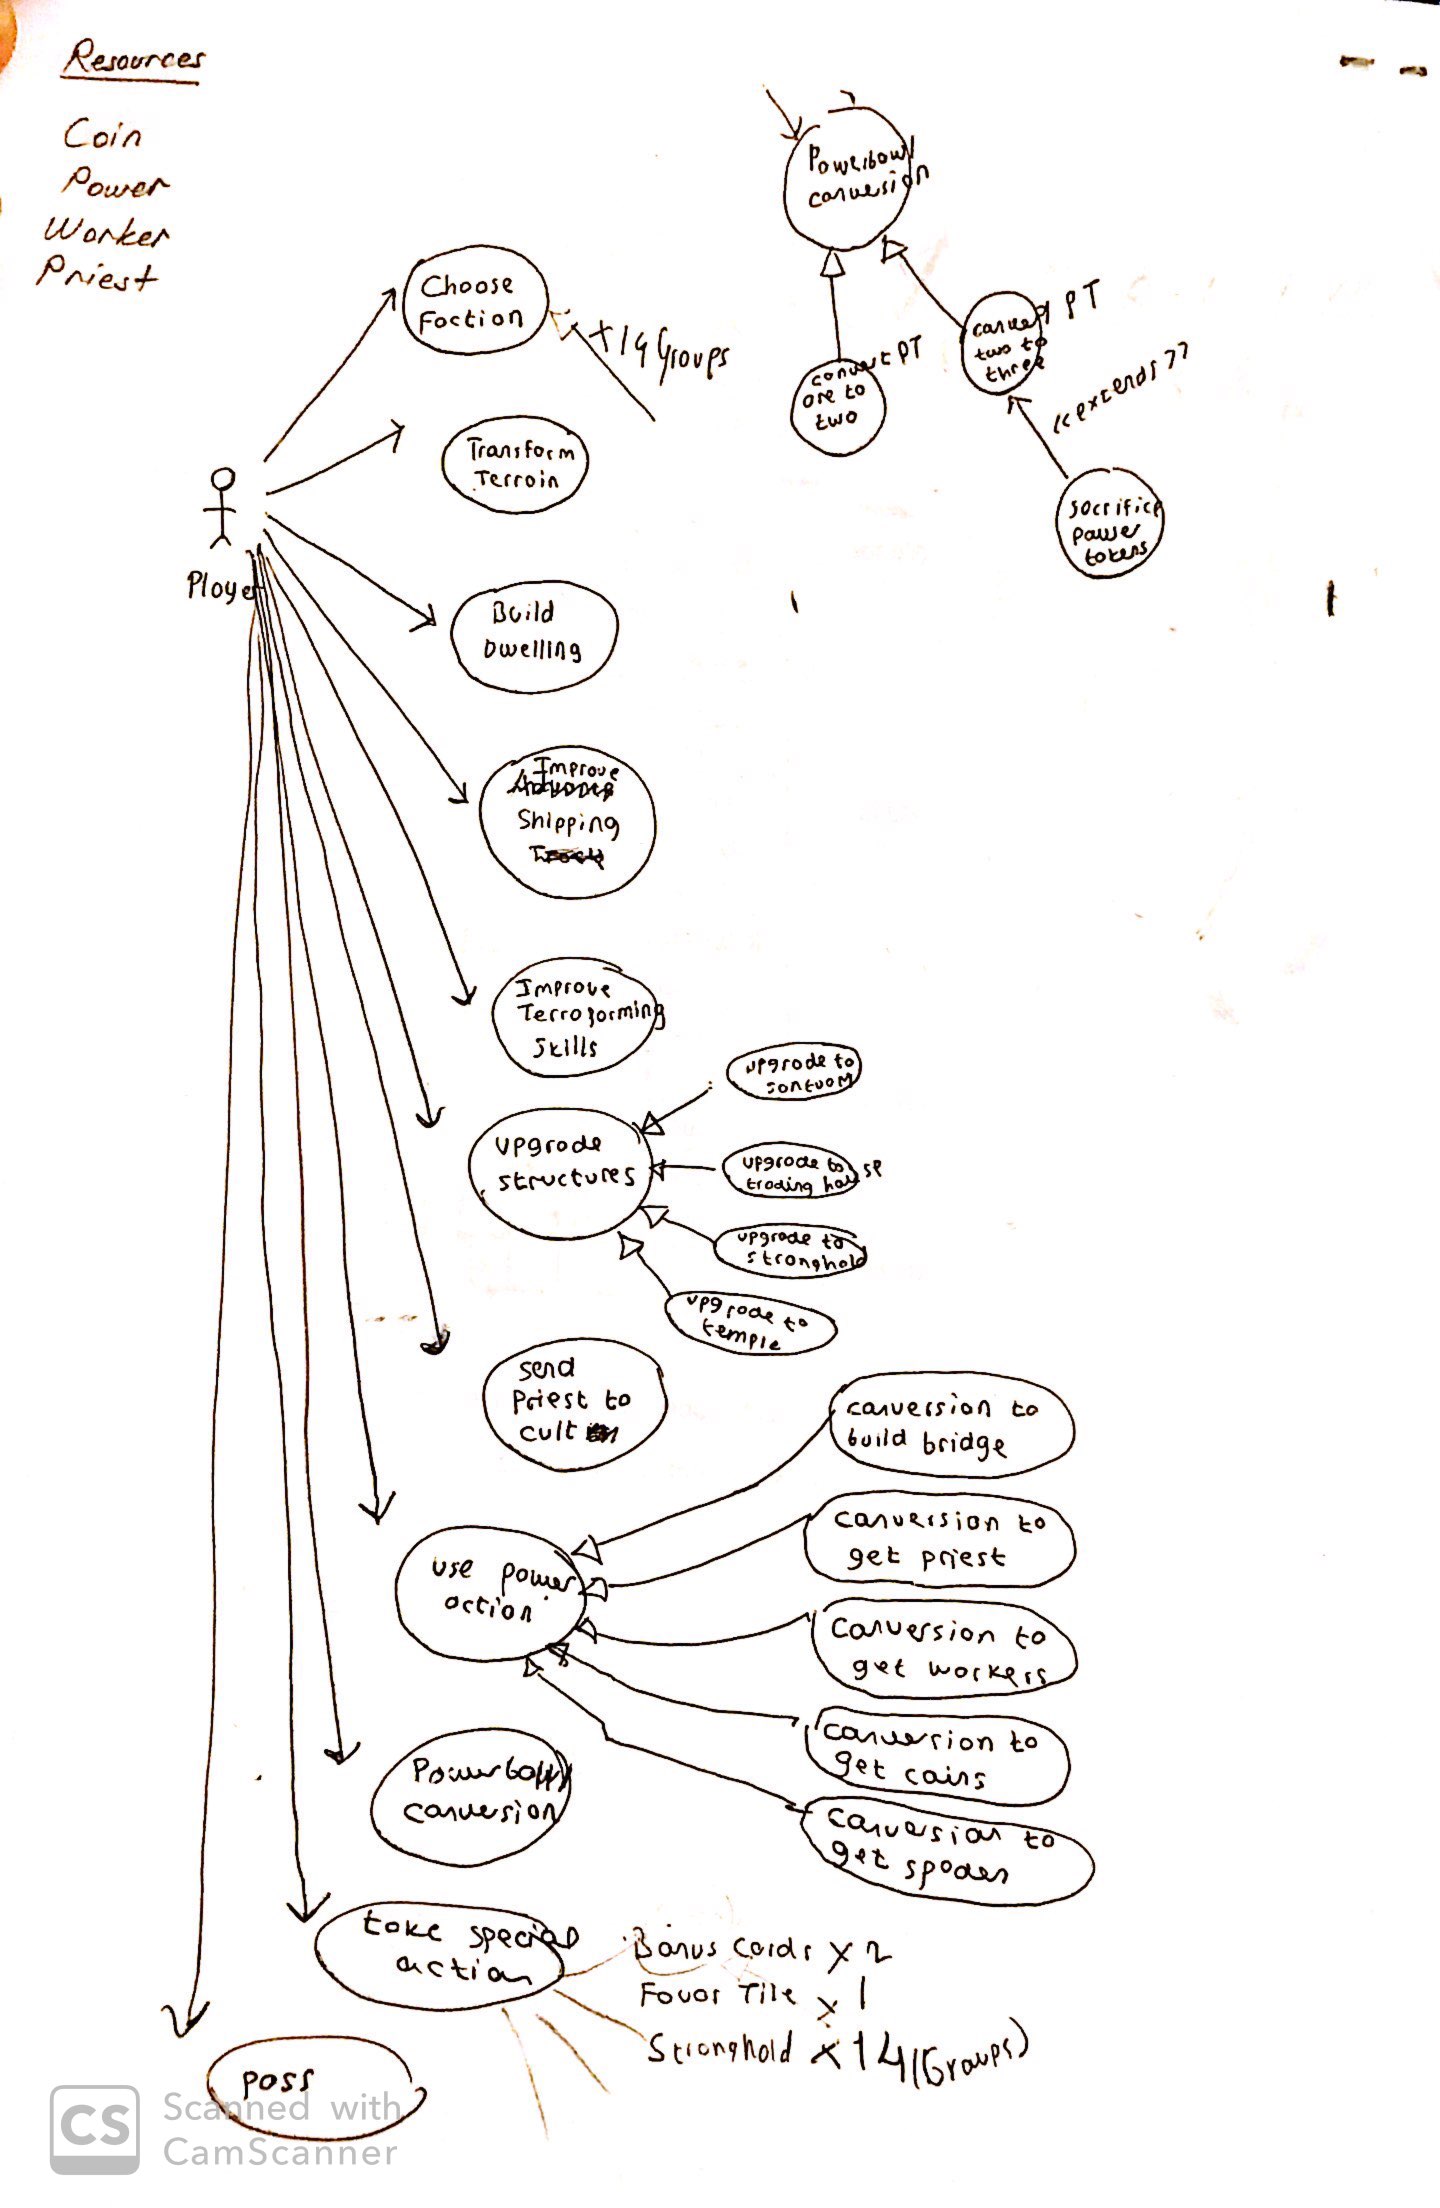 Resources
Coin
Power
Worker
Priest
Choose
Faction
x14 Groups
Powerbowl
conversion
convert PT
one to
two
convert PT
two to
three
<<extends>>
sacrifice
power
tokens
Player
Transform
Terrain
Build
Dwelling
Improve
Shipping
Improve
Terraforming
Skills
upgrade
structures
upgrade to
upgrade to
trading house
upgrade to
stronghold
upgrade to
temple
send
Priest to
cult
use power
action
conversion to
build bridge
conversion to
get priest
conversion to
get workers
conversion to
get coins
conversion to
get spades
Powerbowl
conversion
take special
action
Bonus Cards x 2
Favor Tile x 1
Stronghold x 14 (Groups)
pass
CS
Scanned with
CamScanner